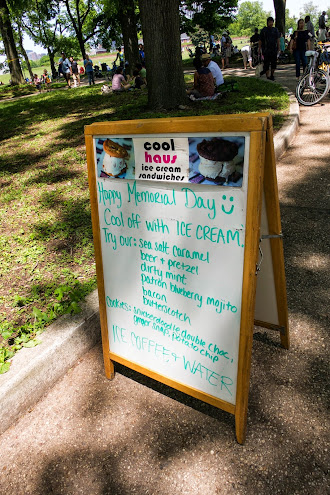 cool
haus
ice cream
sandwiches
Happy Memorial Day
Cool off with ICE CREAM.
Try our: sea salt caramel
beer + pretzel
dirty mint
patron blueberry mojito
bacon
butterscotch
Cookies: snickerdoodle, double choc,
ginger snap, potato chip
ICE COFFEE + WATER